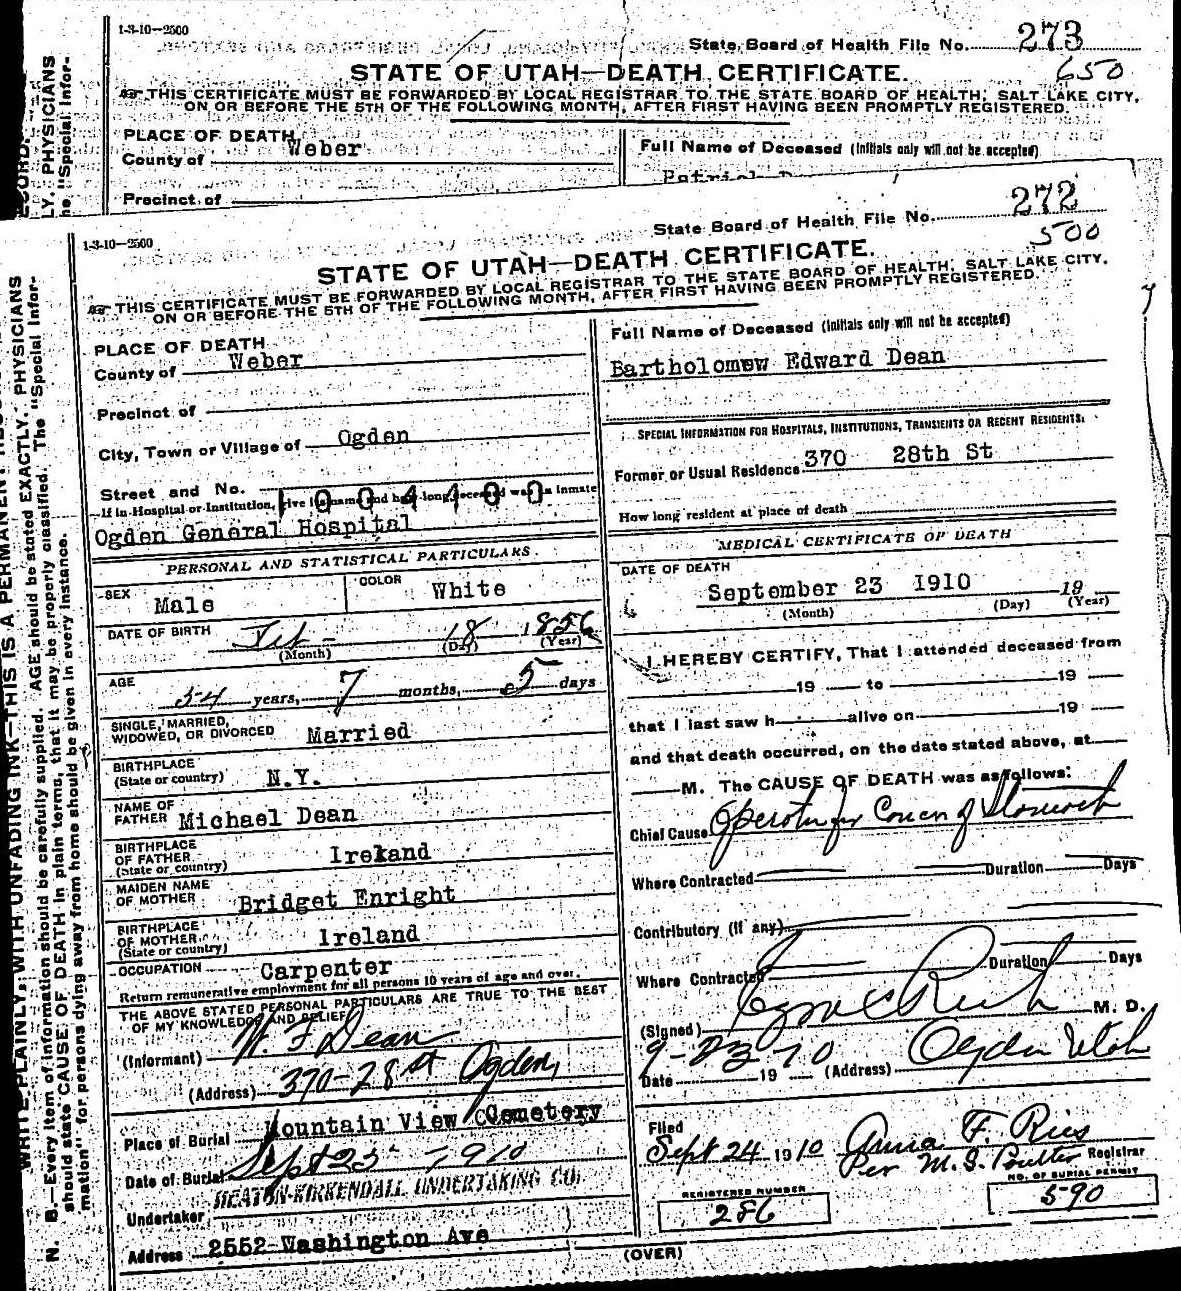 1-3-10—2500
State Board of Health File No. 273
650
STATE OF UTAH—DEATH CERTIFICATE.
THIS CERTIFICATE MUST BE FORWARDED BY LOCAL REGISTRAR TO THE STATE BOARD OF HEALTH, SALT LAKE CITY,
ON OR BEFORE THE 5TH OF THE FOLLOWING MONTH, AFTER FIRST HAVING BEEN PROMPTLY REGISTERED.
PLACE OF DEATH
County of Weber
Full Name of Deceased (Initials only will not be accepted)
Precinct of
1-3-10—2500
State Board of Health File No. 272
500
STATE OF UTAH—DEATH CERTIFICATE.
THIS CERTIFICATE MUST BE FORWARDED BY LOCAL REGISTRAR TO THE STATE BOARD OF HEALTH, SALT LAKE CITY,
ON OR BEFORE THE 5TH OF THE FOLLOWING MONTH, AFTER FIRST HAVING BEEN PROMPTLY REGISTERED.
PLACE OF DEATH
County of Weber
Precinct of
City, Town or Village of Ogden
Street and No.
If in Hospital or Institution, give its name and how long deceased was an inmate
1004400
Ogden General Hospital
PERSONAL AND STATISTICAL PARTICULARS
SEX Male
COLOR White
DATE OF BIRTH 18 1856
(Month) (Day) (Year)
AGE 54 years, 7 months, 5 days
SINGLE, MARRIED,
WIDOWED, OR DIVORCED Married
BIRTHPLACE
(State or country) N.Y.
NAME OF
FATHER Michael Dean
BIRTHPLACE
OF FATHER
(State or country) Ireland
MAIDEN NAME
OF MOTHER Bridget Enright
BIRTHPLACE
OF MOTHER
(State or country) Ireland
OCCUPATION Carpenter
Return remunerative employment for all persons 10 years of age and over.
THE ABOVE STATED PERSONAL PARTICULARS ARE TRUE TO THE BEST
OF MY KNOWLEDGE AND BELIEF
(Informant) W. F Dean
(Address) 370-28 st Ogden
Place of Burial Mountain View Cemetery
Date of Burial Sept 25 1910
HEATON-KIRKENDALL UNDERTAKING CO.
Undertaker
Address 2552 Washington Ave
Full Name of Deceased (Initials only will not be accepted)
Bartholomew Edward Dean
SPECIAL INFORMATION FOR HOSPITALS, INSTITUTIONS, TRANSIENTS OR RECENT RESIDENTS:
Former or Usual Residence 370 28th St
How long resident at place of death
MEDICAL CERTIFICATE OF DEATH
DATE OF DEATH
September 23 1910 19
(Month) (Day) (Year)
I HEREBY CERTIFY, That I attended deceased from
19 to 19
that I last saw h alive on 19
and that death occurred, on the date stated above, at
M. The CAUSE OF DEATH was as follows:
Chief Cause Operation for Cancer of Stomach
Where Contracted Duration Days
Contributory (if any)
Where Contracted Duration Days
(Signed) Rich M. D.
Date 9-23-10 19 (Address) Ogden Utah
Filed
Sept 24 1910 Anna F. Ries
Per M. S. Poulter Registrar
REGISTERED NUMBER
286
NO. OF BURIAL PERMIT
590
(OVER)
WRITE PLAINLY, WITH UNFADING INK—THIS IS A PERMANENT
N. B.—Every item of information should be carefully supplied. AGE should be stated EXACTLY. PHYSICIANS
should state CAUSE OF DEATH in plain terms, that it may be properly classified. The "Special Infor-
mation" for persons dying away from home should be given in every instance.